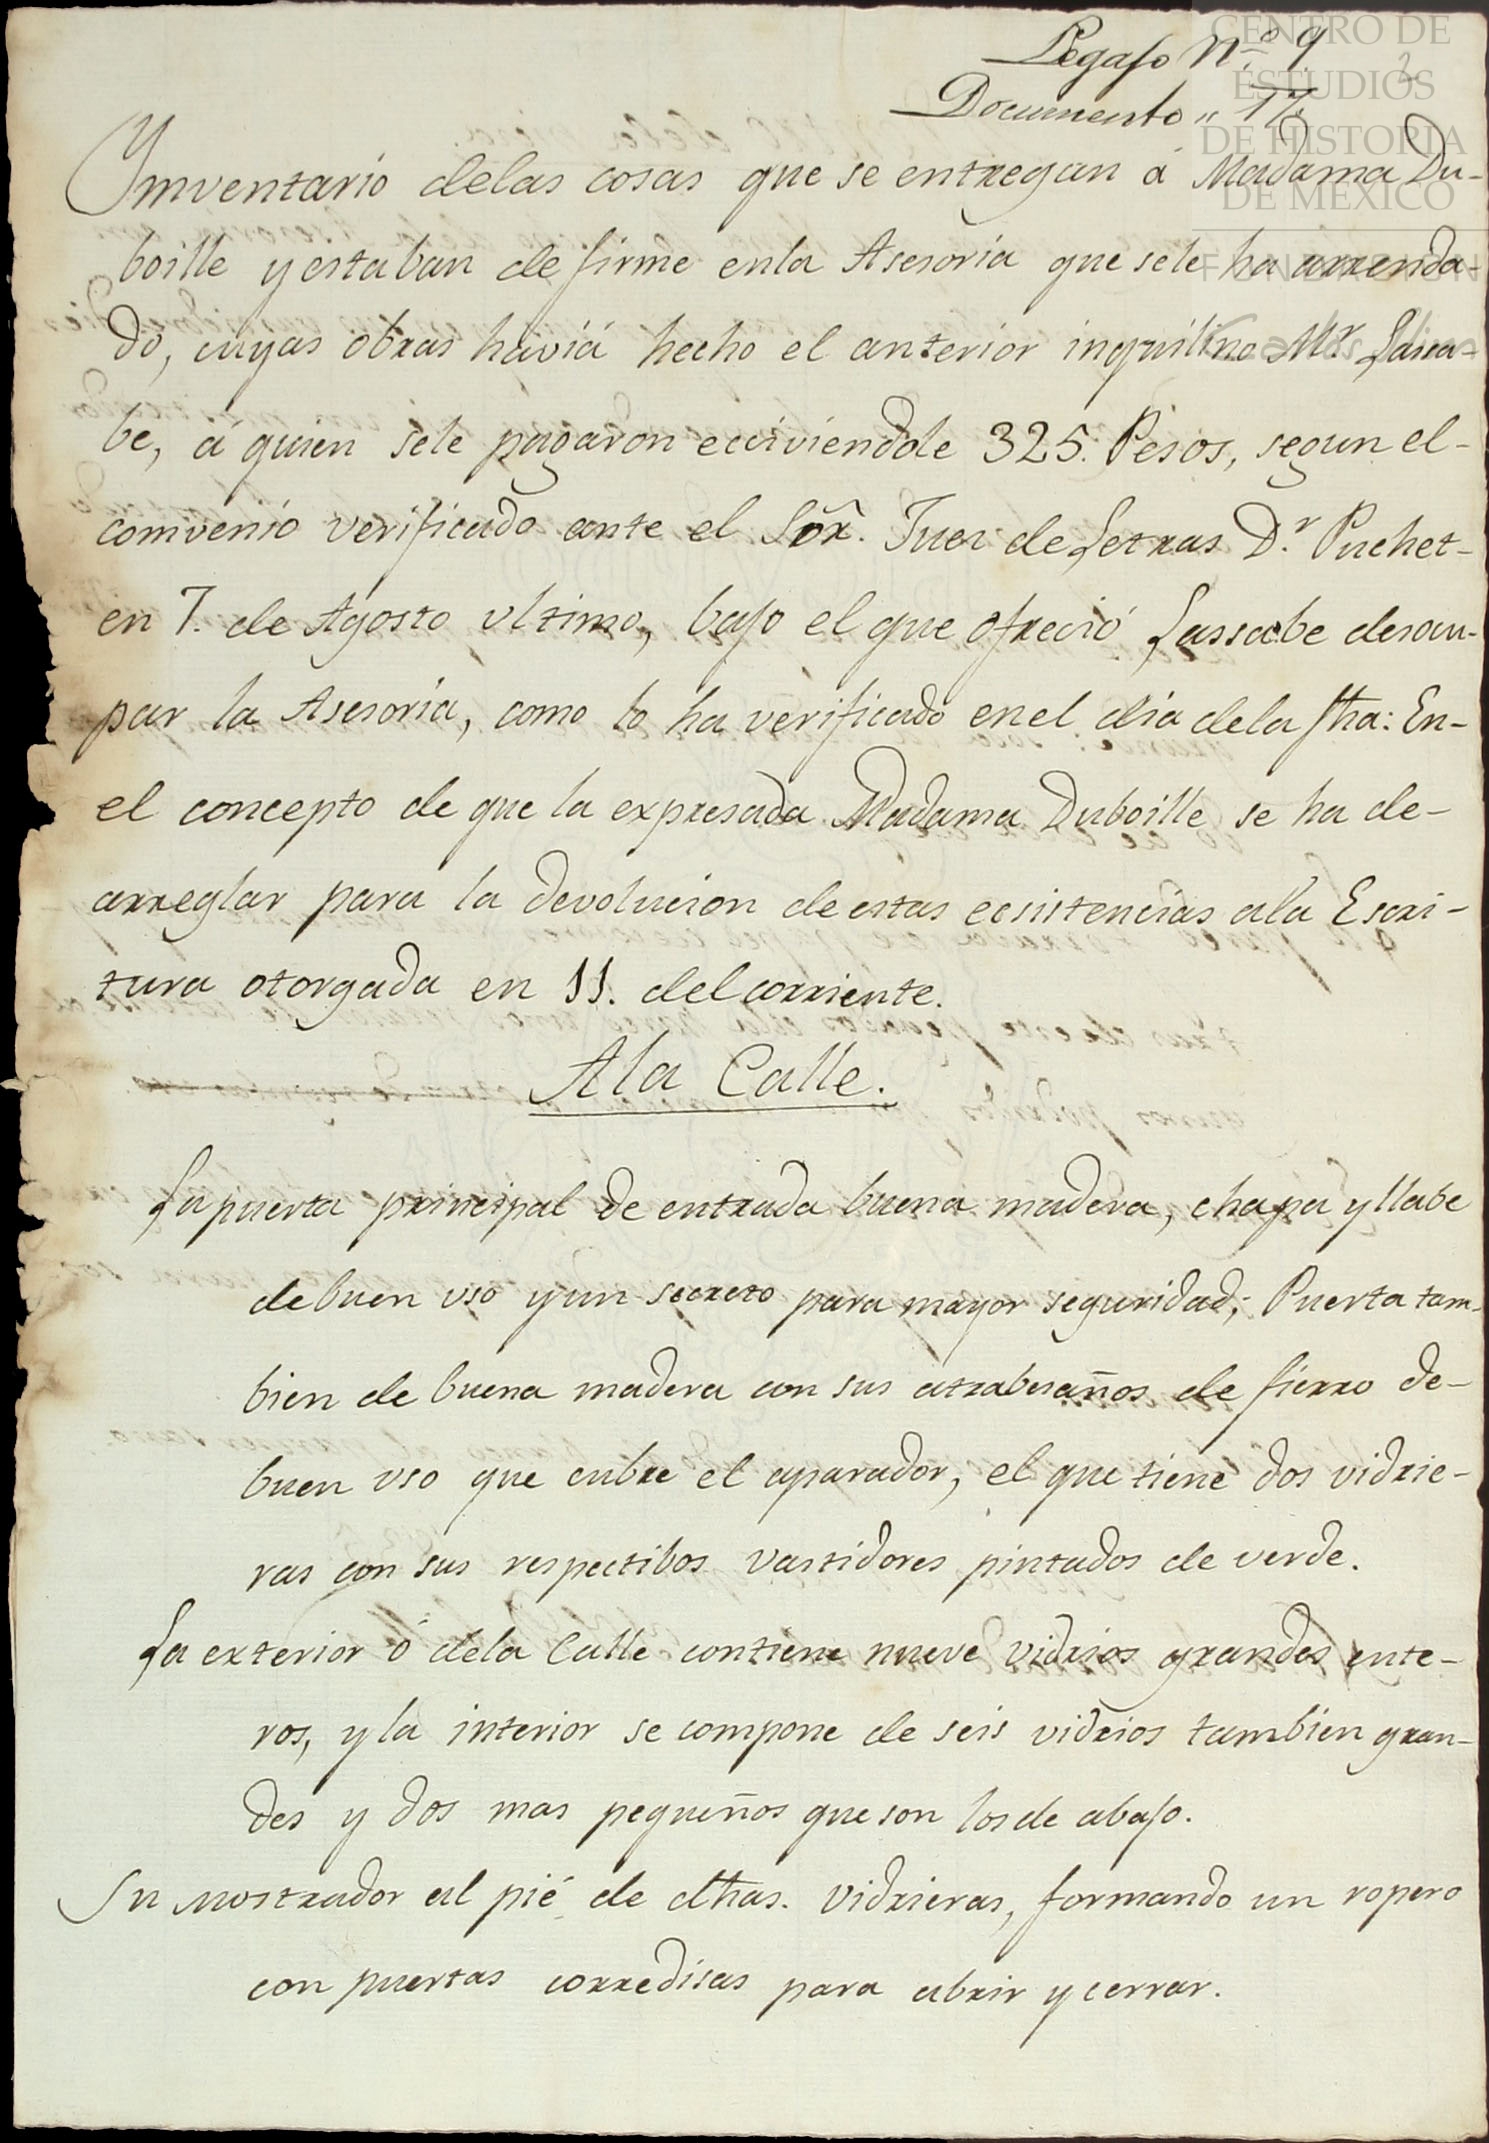 Legajo N.º 9
2
Documento " 17.
CENTRO DE
ESTUDIOS
DE HISTORIA
DE MEXICO
FUNDACIÓN
Ymventario delas cosas que se entregan á Madama Du-
boille y estaban de firme enla Asesoria que sele ha arrenda-
do, cuyas obras haviá hecho el anterior inquilino Mr. Lassa-
be, á quien sele pagaron ecciviendole 325. Pesos, segun el-
comvenio verificado ante el Sõr. Juez de Letras D.r Puchet-
en 7. de Agosto ultimo, bajo el que ofreció Lassabe desocu-
par la Asesoria, como lo ha verificado enel dia dela fha: En-
el concepto de que la expresada Madama Duboille se ha de-
arreglar para la devolucion de estas ecsistencias ala Escri-
tura otorgada en 11. del corriente.
Ala Calle.
La puerta principal de entrada buena madera, chapa y llabe
de buen uso y un secreto para mayor seguridad; Puerta tam-
bien de buena madera con sus atrabesaños de fierro de-
buen uso que cubre el aparador, el que tiene dos vidrie-
ras con sus respectibos vastidores pintados de verde.
La exterior ó dela Calle contiene nueve vidrios grandes ente-
ros, y la interior se compone de seis vidrios tambien gran-
des y dos mas pequeños que son los de abajo.
Un mostrador al pié de dhas. vidrieras, formando un ropero
con puertas corredisas para abrir y cerrar.